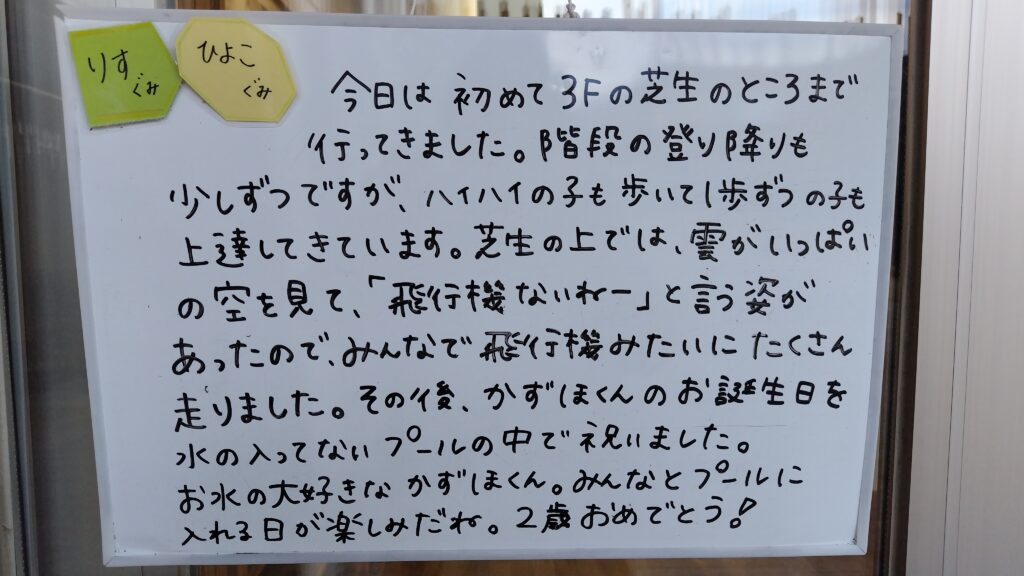 りす
ぐみ
ひよこ
ぐみ
今日は初めて3Fの芝生のところまで
行ってきました。階段の登り降りも
少しずつですが、ハイハイの子も歩いて1歩ずつの子も
上達してきています。芝生の上では、雲がいっぱい
の空を見て、「飛行機ないねー」と言う姿が
あったので、みんなで飛行機みたいにたくさん
走りました。その後、かずほくんのお誕生日を
水の入ってないプールの中で祝いました。
お水の大好きなかずほくん。みんなとプールに
入れる日が楽しみだね。2歳おめでとう!